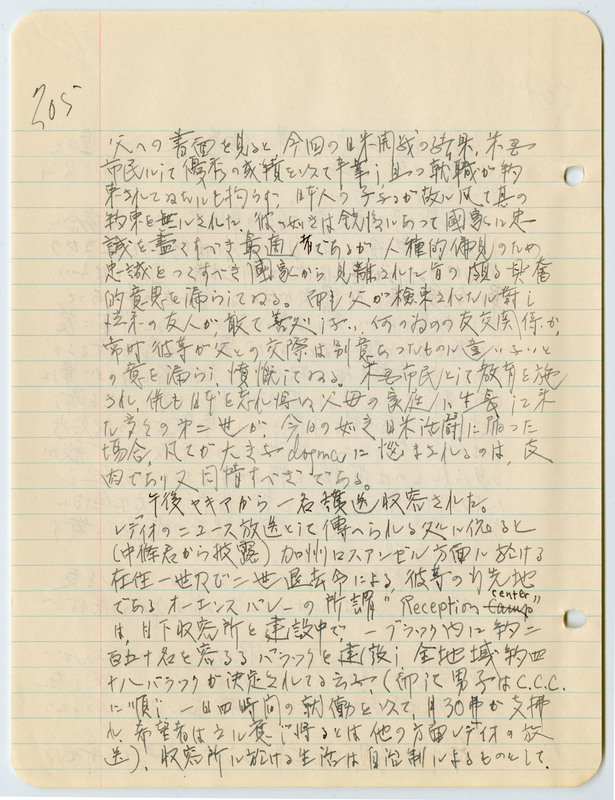 205
父への書面を見ると今回の日米開戦の結果、米国
市民にして優秀の成績を以って卒業し且つ就職が約
束されてゐるにも拘らず、日本人の子なるが故に凡て其の
約束を無にされた。彼の如きは銃後にあって國家に忠
誠を盡くすべき最適者であるが、人種的偏見のため
忠誠をつくすべき國家から見離された旨の頗る興奮
的意思を漏らしてゐる。而も父が檢束されたに對し
従来の友人が、敢て
何の為めの友交関係か、
常時彼等が父との交際は別意あったものに違いないと
の意を漏らし、憤慨してゐる。米国市民として教育を施
され、他も日本を忘れ得ない父母の家庭に生長して来
た多くの第二世が、今日の如き日米
に陥った
場合、凡てが大きな dogma に悩まされるのは、皮
肉であり又同情すべきである。
午後ヤキマから一名護送収容された。
レディオのニュース放送として傳へられる処に依ると
(中條君から披露)加州ロスアンゼル方面に於ける
在住一世及び二世退去令による、彼等の行先地
であるオーエンスバレーの所謂“Reception Camp center”
は、目下収容所を建設中で、一ブラック内に約二
百五十名を容るるバラックを建設し、全地域約四
十八バラックが決定されてる云々、(而して男子はC.C.C.
に順し一日四時間の就働を以って、月30弗が支拂
れ、希望者は
意し得るとは他の方面レディオの放
送)、収容所に於ける生活は自治制によるものとして、